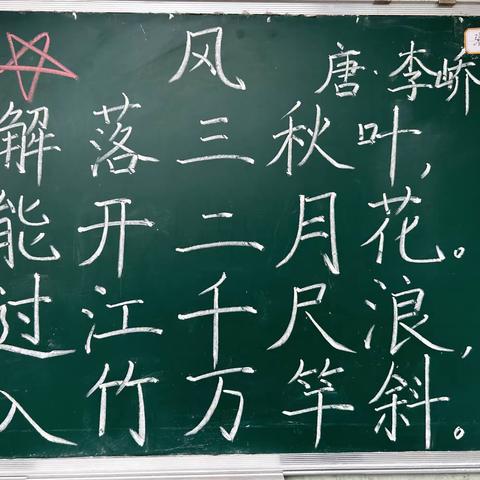 风
唐·李峤
解落三秋叶,
能开二月花。
过江千尺浪,
入竹万竿斜。